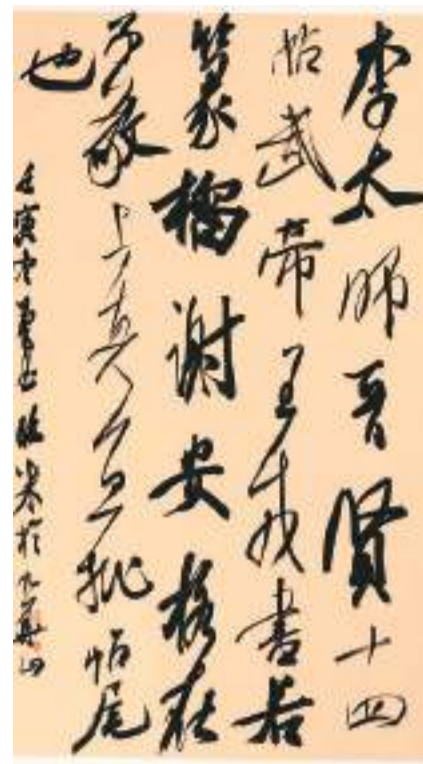 李太師晉賢十四
帖武帝王戎書若
篆籀謝安格在
子敬上真宜批帖尾
也
壬寅